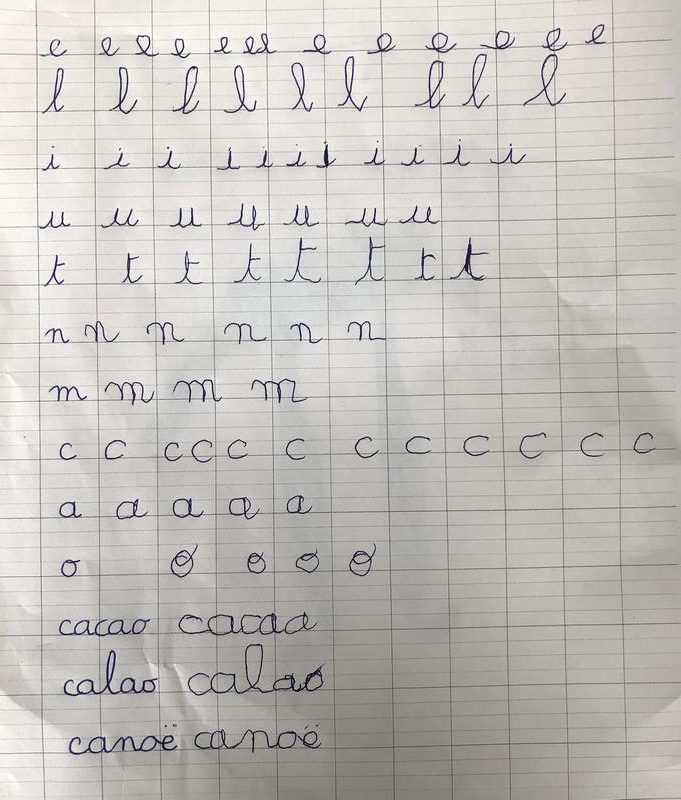 e e e e e e e e e e e e e e
l l l l l l l l l
i i i i i i i i i i i
u u u u u u u
t t t t t t t t
n n n n n n
m m m m
c c c c c c c c c c c c
a a a a a
o o o o o
cacao cacao
calao calao
canoë canoë